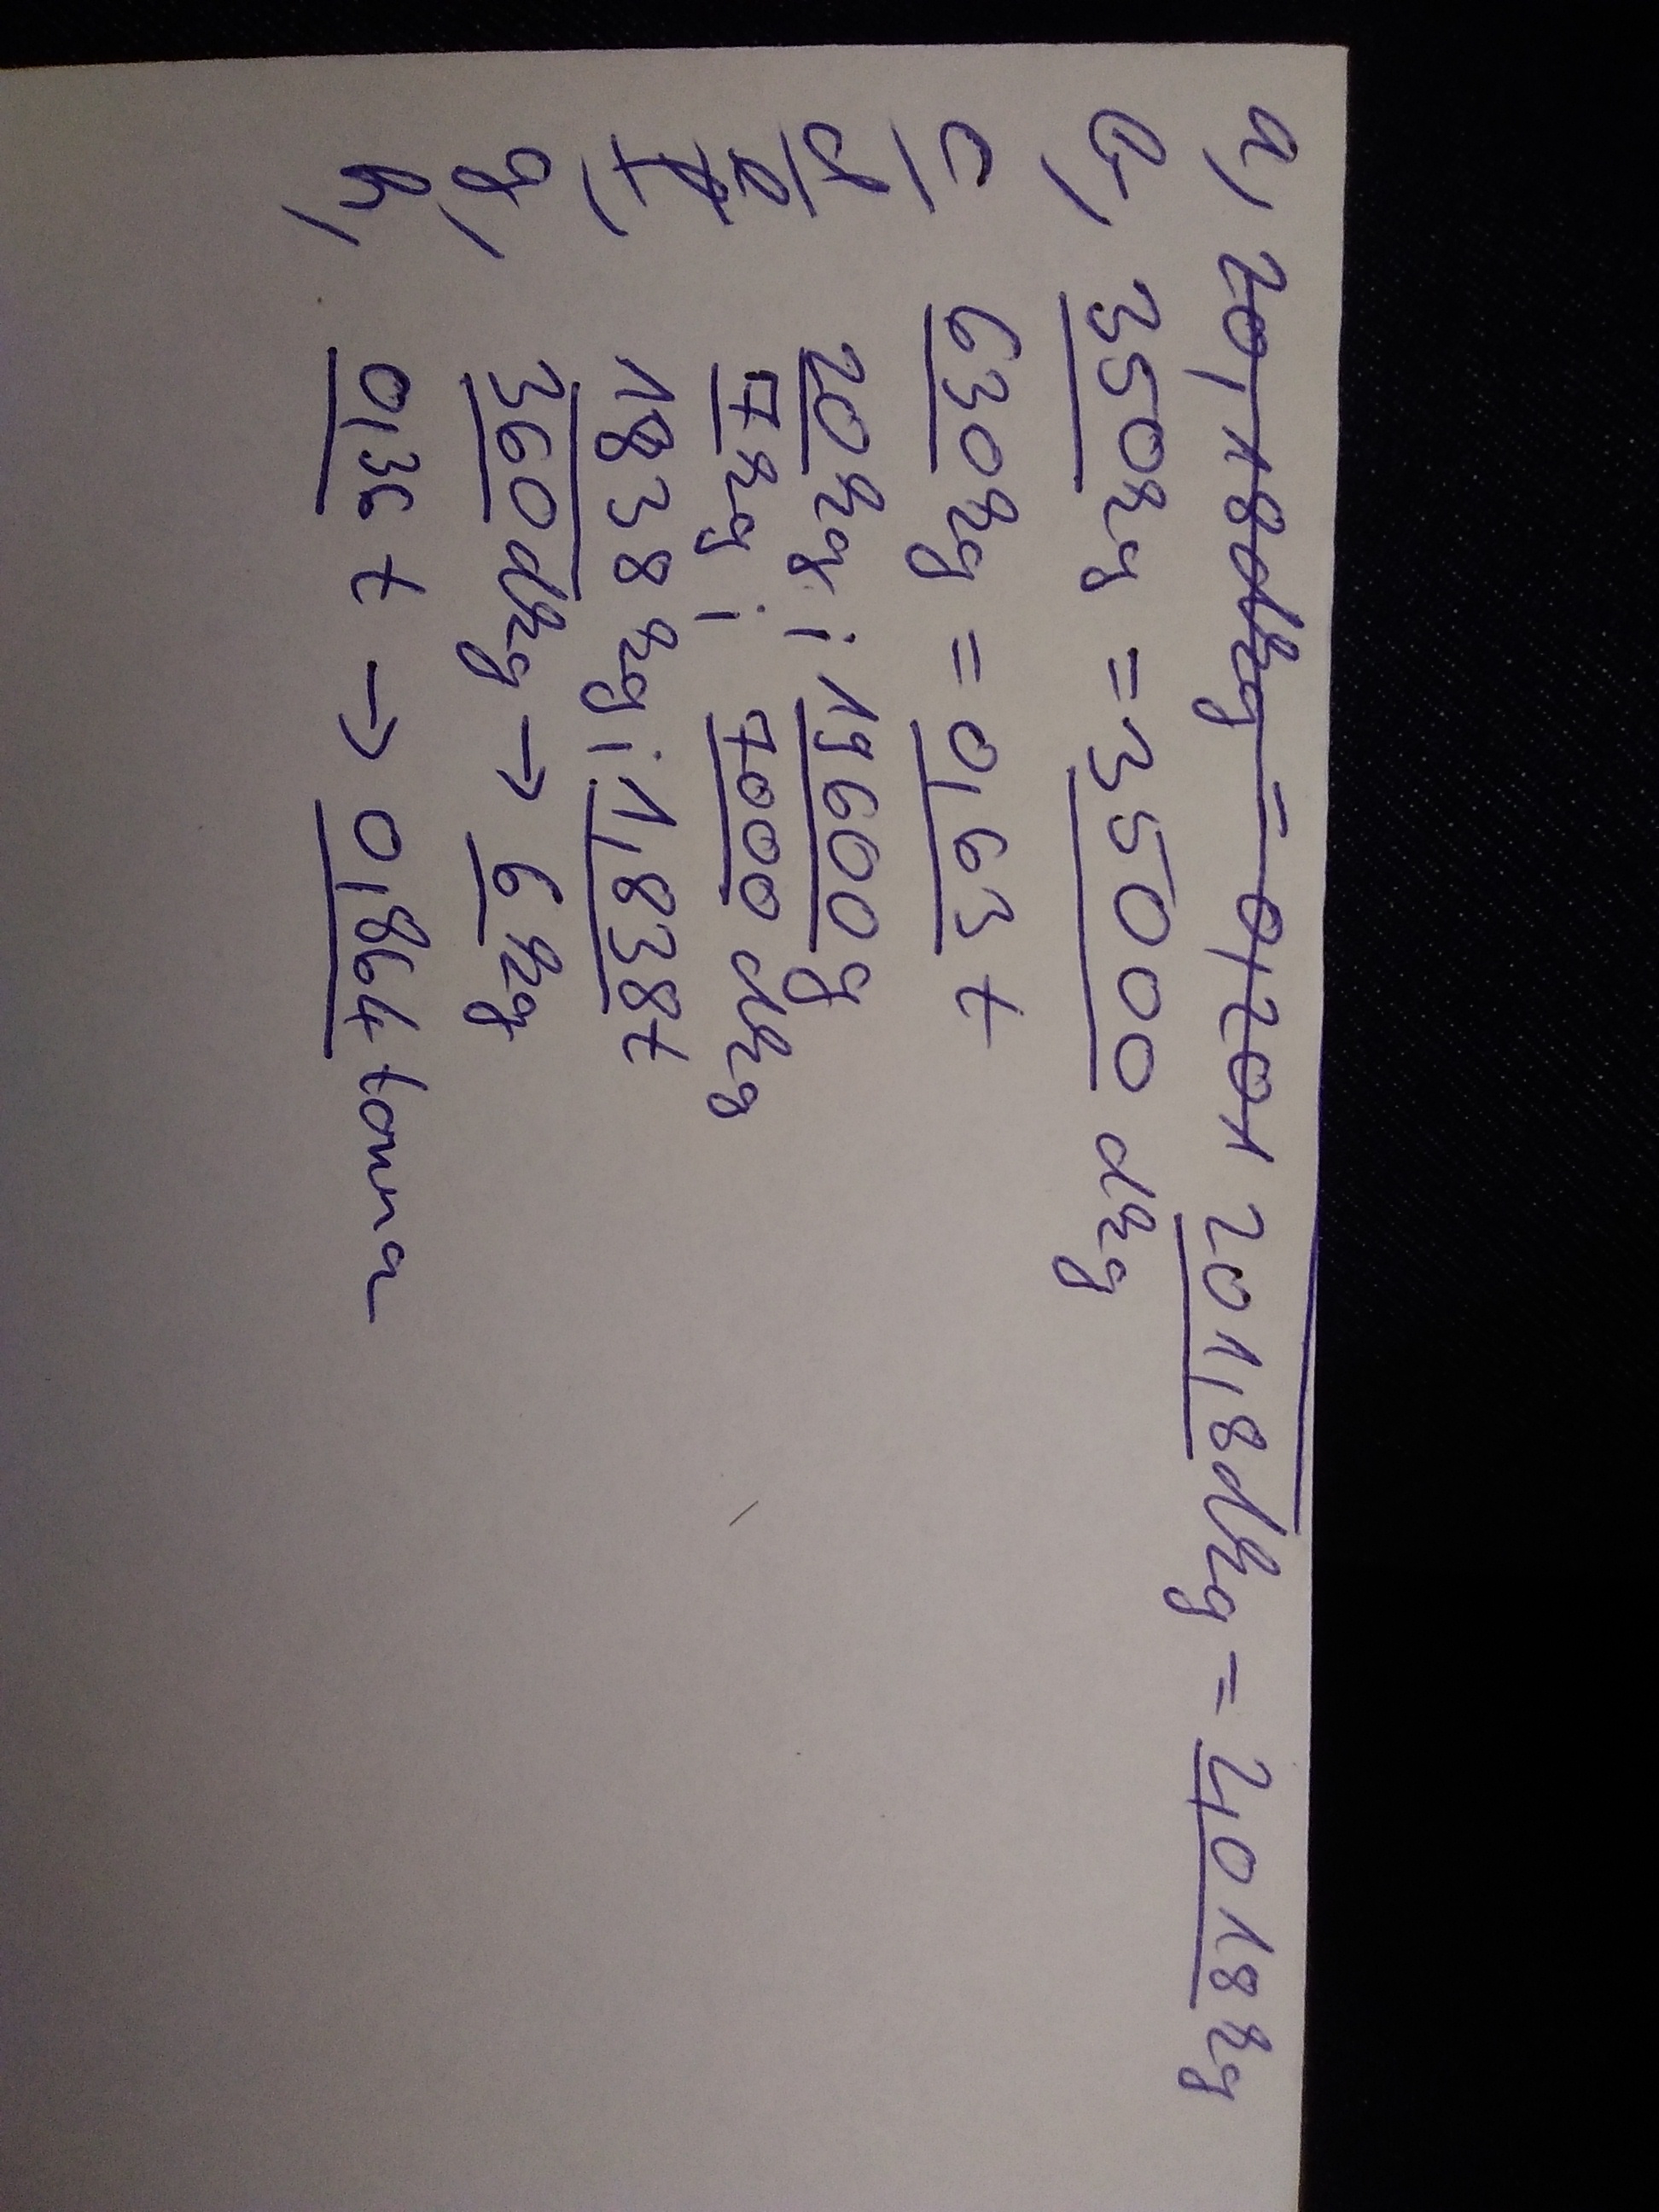 a, 20,18dkg = 0,201 201,8dkg = 2,018kg
b, 350kg = 35000 dkg
c, 630kg = 0,63 t
d, 20kg i 19600g
e, 7kg i 7000 dkg
f, 1838 kg i 1,838t
g, 360dkg → 6kg
h, 0,36 t → 0,864 tonna